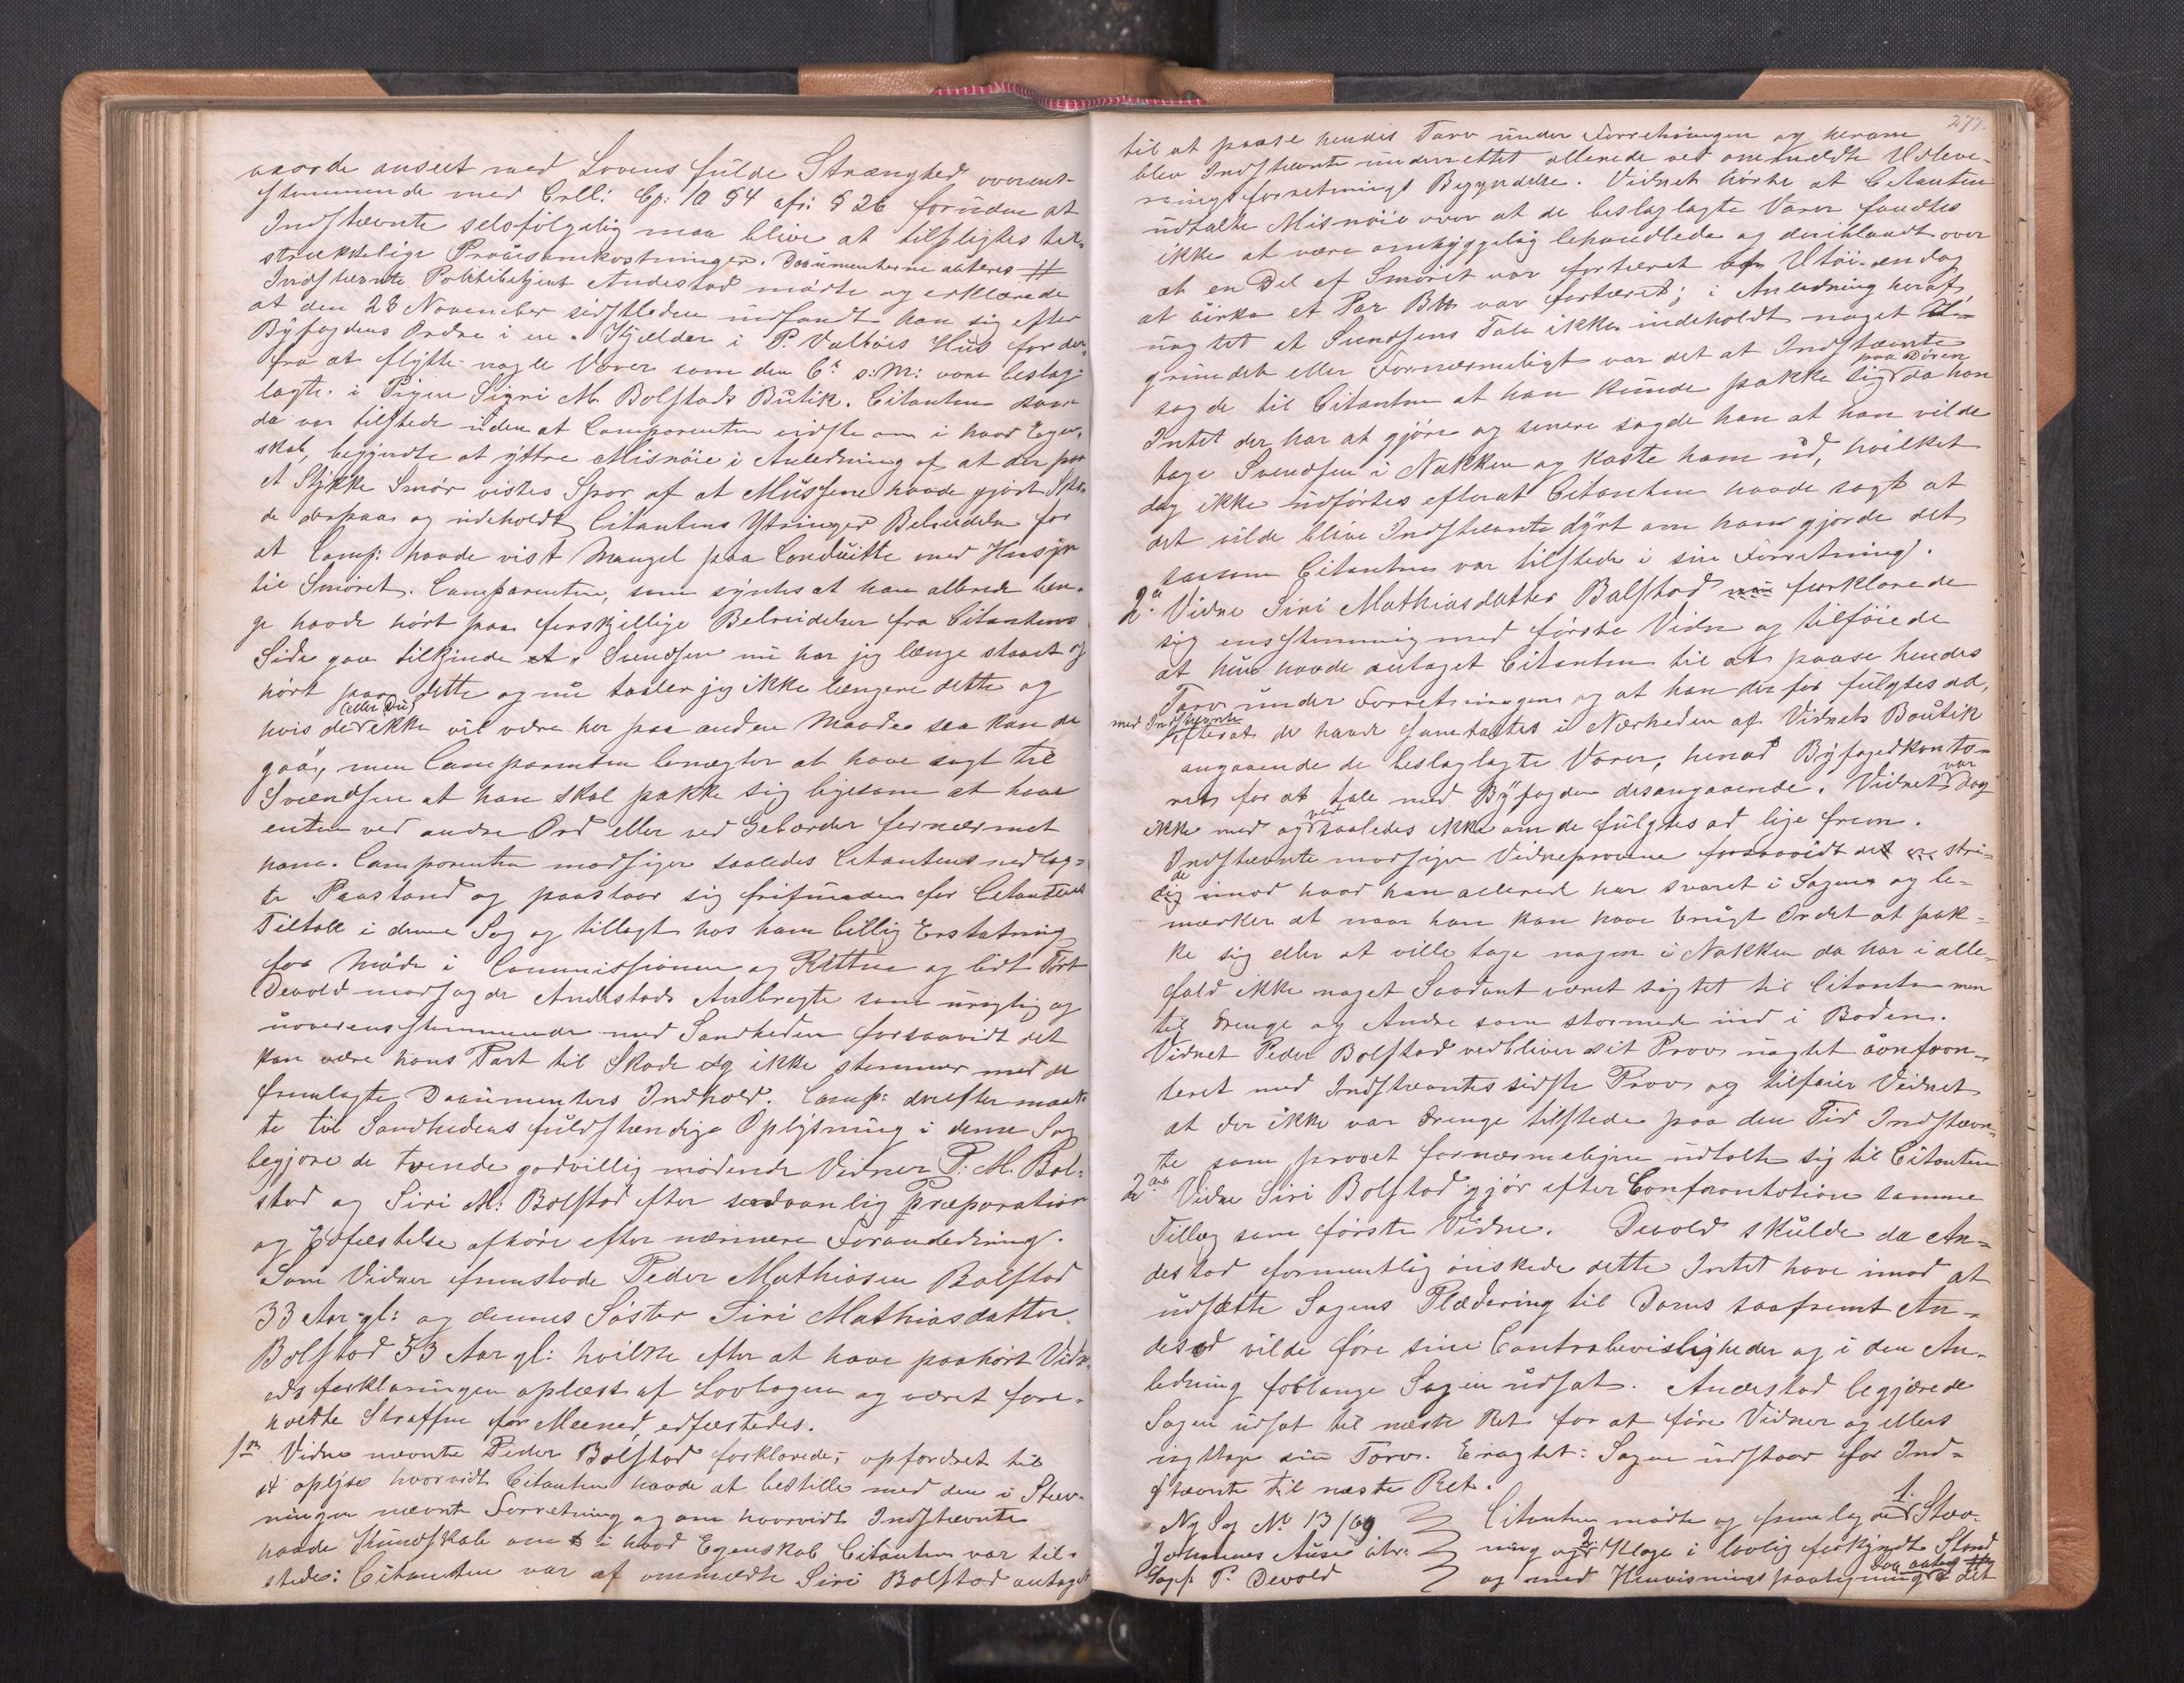 vorde anseet med Lovens fulde Strænghed overens-
stemmende med Crll: Cp: 10 § 4 cfr: § 26 foruden at
Indstævnte selvfølgelig maa blive at tilpligtes til-
strækkelige Procesomkostninger. Documenterne akteres #
Indstævnte Politibetjent Andestad mødte og erklærede
at den 28 November sidstleden indfandt han sig efter
Byfogdens Ordre i en Kjelder i P. Valbøes Hus for der-
fra at flytte nogle Varer som den 6te s: M: vare beslag-
lagte i Pigen Sigri M. Bolstads Butik. Citanten som
da var tilstede uden at Comparenten vidste om i hvad Egen-
skab, begyndte at yttre Misnøie i Anledning af at der paa
et Stykke Smør vistes Spor af at Musene havde gjort Ska-
de derpaa og indeholdt Citantens Ytringer Bebreidelse for
at Comp: havde vist Mangel paa Conduitte med Hensyn
til Smøret. Comparenten, som syntes at han allerede læn-
ge havde hørt paa forskjellige Bebreidelser fra Citantens
Side gav tilkjende at "Svendsen nu har jeg længe staaet og
hørt paa dette og nu taaler jeg ikke længere dette og
hvis de (eller Du) ikke vil være her paa anden Maade saa kan de
gaa", men Comparenten benægter at have sagt til
Svendsen at han skal pakke sig ligesom at have
enten ved andre Ord eller ved Gebærder fornærmet
ham. Comparenten modsiger saaledes Citantens nedlag-
te Paastand og paastaar sig frifunden for Citantens
Tiltale i denne Sag og tillagt hos ham billig Erstatning
for Møde i Commissionen og Retten og lidt Tort
Devold modsagde Andestads Anbragte som urigtig og
uoverensstemmende med Sandheden forsaavidt det
kan være hans Part til Skade og ikke stemmer med de
fremlagte Documenters Indhold. Comp: derefter maat-
te til Sandhedens fuldstændige Oplysning i denne Sag
begjære de tvende godvillig mødende Vidner P: M. Bol-
stad og Siri M: Bolstad efter sædvanlig Præparation
og Edfæstelse afhørt efter nærmere Foranledning.
Som Vidner fremstode Peder Mathiasen Bolstad
33 Aar gl: og dennes Søster Siri Mathiasdatter
Bolstad 53 Aar gl: hvilke efter at have paahørt Vidn-
eds forklaringen oplæst af Lovbogen og været fore-
holdte Straffen for Meened, edfæstedes.
1ste Vidne nævnte Peder Bolstad forklarede, opfordret til
at oplyse hvorvidt Citanten havde at bestille med den i Stæv-
ningen nævnte Forretning og om hvorvidt Indstævnte
havde Kundskab om i hvad Egenskab Citanten var til-
stede: Citanten var af ommeldte Siri Bolstad antaget
277.
til at paase hendes Tarv under Forretningen og herom
blev Indstævnte underrettet allerede ved ommeldte Udleve-
ringsforretnings Begyndelse. Vidnet hørte at Citanten
udtalte Misnøie over at de beslaglagte Varer fandtes
ikke at være omhyggelig behandlede og deriblandt over
at en Del af Smøret var fortæret af Utøi endog
at cirka et Par B℔ var fortæret; i Anledning heraf
uagtet at Svendsens Tale ikke indeholdt noget U-
grundet eller Fornærmeligt var det at Indstævnte
sagde til Citanten at han kunde pakke sig paa Døren da han
Intet der har at gjøre og senere sagde han at han vilde
tage Svendsen i Nakken og kaste ham ud, hvilket
dog ikke udførtes efterat Citanten havde sagt at
det vilde blive Indstævnte dyrt om han gjorde det
saasom Citanten var tilstede i sin Forretning.
2det Vidne Siri Mathiasdatter Bolstad forklarede
sig enstemmig med første Vidne og tilføiede
at hun havde antaget Citanten til at paase hendes
Tarv under Forretningen og at han derfor fulgtes ad,
med Indstævnte efterat de havde samtaltes i Nærheden af Vidnets Boutik
angaaende de beslaglagte Varer, henad Byfogedkonto-
ret for at tale med Byfogden desangaaende. Vidnet var dog
ikke med og ved saaledes ikke om de fulgtes ad lige frem.
Indstævnte modsiger Vidneprovene forsaavidt de stri-
de imod hvad han allerede har svaret i Sagen og be-
mærker at naar han kan have brugt Ordet at pak-
ke sig eller at ville tage nogen i Nakken da har i alle-
fald ikke noget Saadant været sigtet til Citanten men
til Drenge og Andre som stormede ind i Boden.
Vidnet Peder Bolstad vedbliver sit Prov uagtet confron-
teret med Indstævntes sidste Prov og tilføier Vidnet
at der ikke var Drenge tilstede paa den Tid Indstævn-
te som provet fornærmeligen udtalte sig til Citanten
2det Vidne Siri Bolstad gjør efter Confrontation samme
Tillæg som første Vidne. Devold skulde da An-
destad formentlig ønskede dette Intet have imod at
udsætte Sagens Plædering til Doms saafremt An-
destad vilde føre sine Contrabevisligheder og i den An-
ledning forlange Sagen udsat. Andestad begjærede
Sagen udsat til næste Ret for at føre Vidner og ellers
iagttage sin Tarv. Eragtet: Sagen udstaar for Ind-
stævnte til næste Ret.
Ny Sag No 13/69
Johannes Aure ctr:
Sagf. P. Devold
Citanten mødte og fremlagde 1. Stæv-
ning og 2. Klage i lovlig forkyndt Stand
og med Henvisningspaategning det